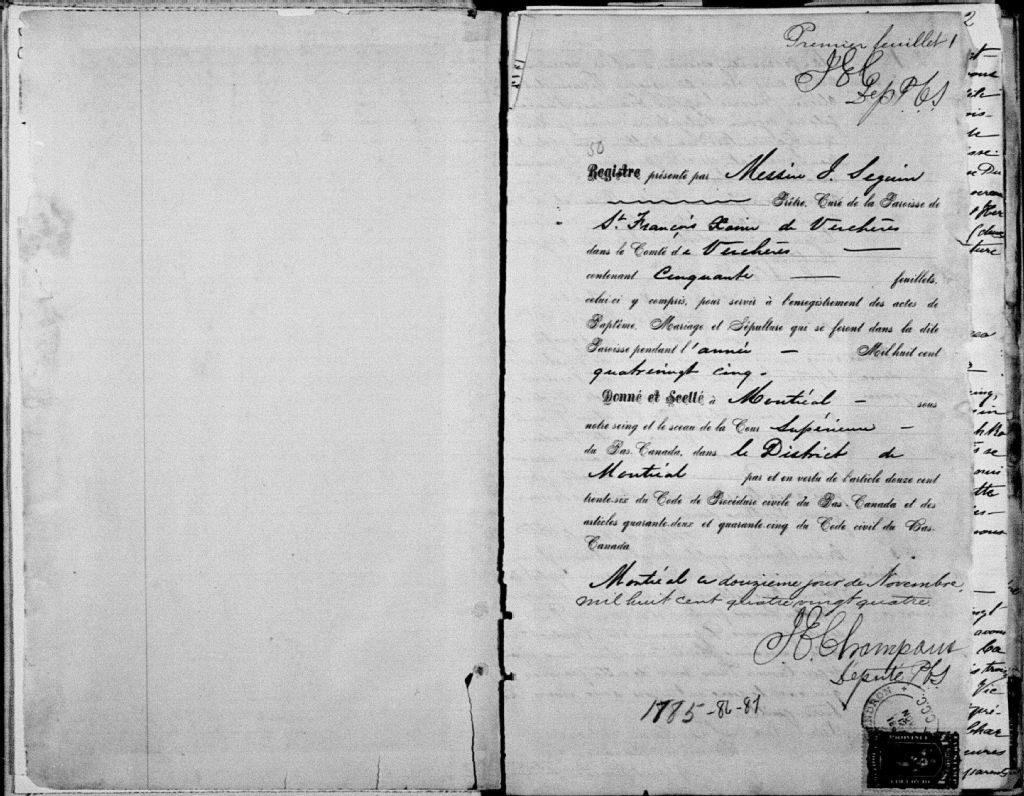 2
Premier feuillet 1
J E C
Dep P.C.S
50
Registre présenté par Messire J. Seguin
Prêtre, Curé de la Paroisse de
St. François Xavier de Verchères
dans le Comté de Verchères
contenant Cinquante feuillets,
celui-ci y compris, pour servir à l'enregistrement des actes de
Baptême, Mariage et Sépulture qui se feront dans la dite
Paroisse pendant l'année — Mil huit cent
quatrevingt cinq.
Donné et Scellé à Montréal — sous
notre seing et le sceau de la Cour Supérieure —
du Bas-Canada, dans le District de
Montréal par et en vertu de l'article douze cent
trente-six du Code de Procédure civile du Bas-Canada et des
articles quarante-deux et quarante-cinq du Code civil du Bas-
Canada
Montréal ce douzième jour de Novembre
mil huit cent quatre vingt quatre.
J. E. Champoux
Député PCS
1785-86-87
PROVINCE